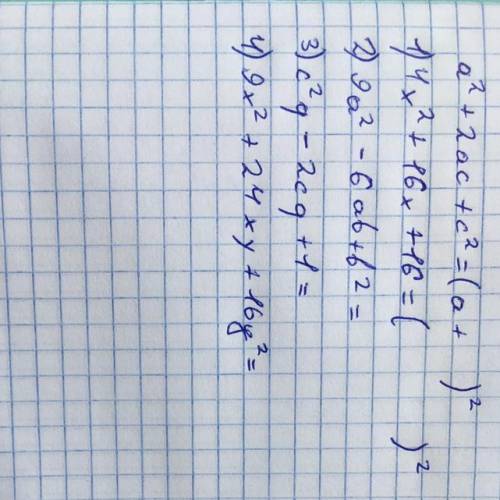 a² + 2ac + c² = (a +    )²
1) 4x² + 16x + 16 = (    )²
2) 9a² - 6ab + b² =
3) c²g - 2cg + 1 =
4) 9x² + 24xy + 16y² =